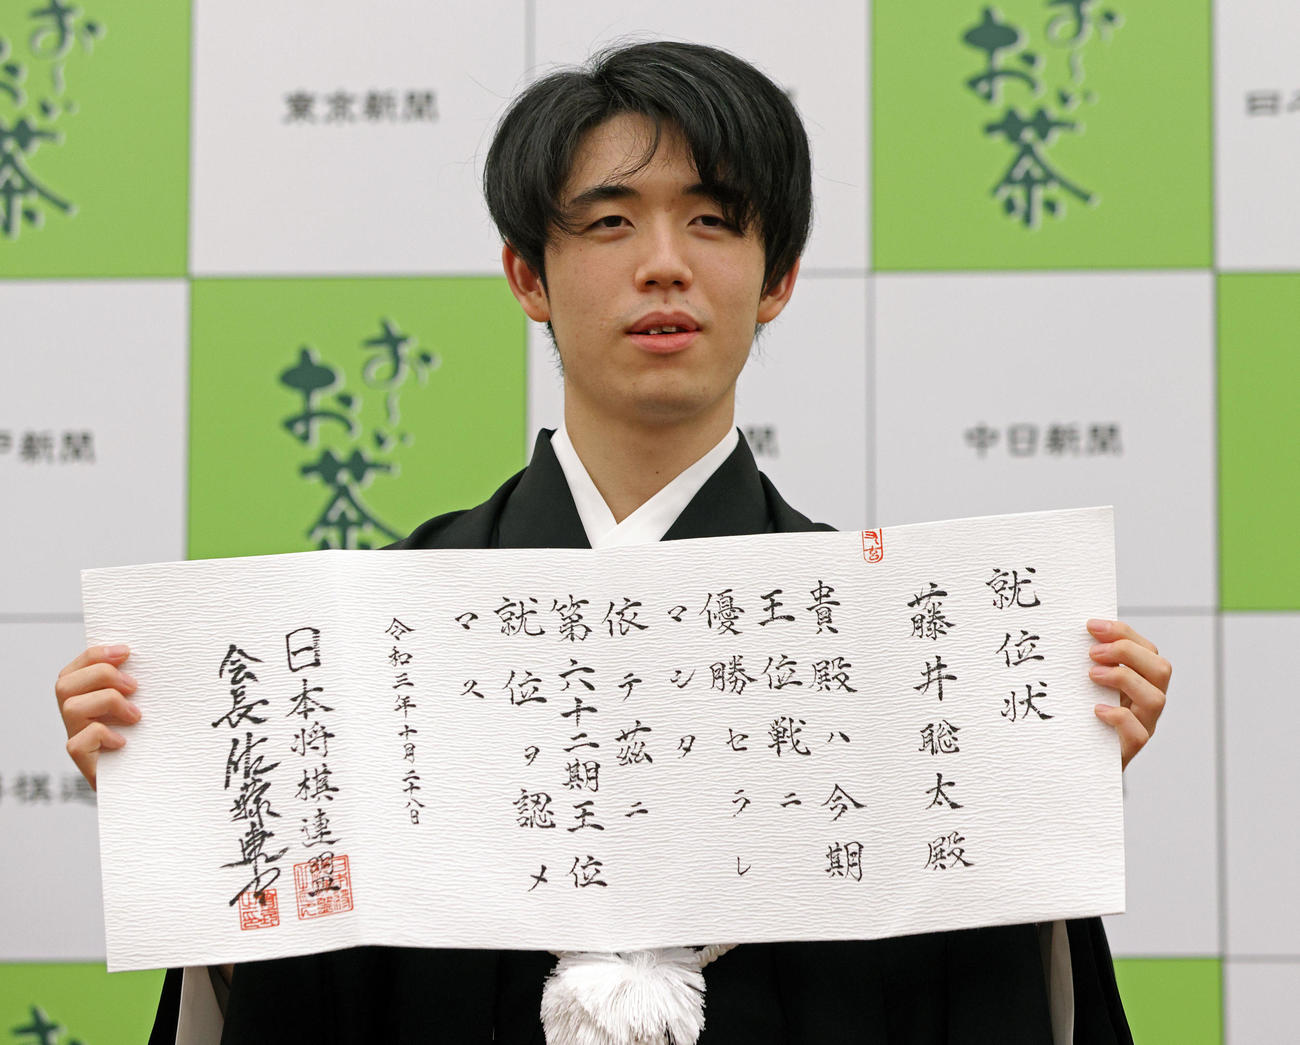 就位状
藤井聡太殿
貴殿ハ今期
王位戦ニ
優勝セラレ
マシタ
依テ茲ニ
第六十二期王位
就位ヲ認メ
マス
令和三年十月二十八日
日本将棋連盟
会長佐藤康光
東京新聞
お～いお茶
お～いお茶
お～いお茶
戸新聞
聞
中日新聞
将棋連